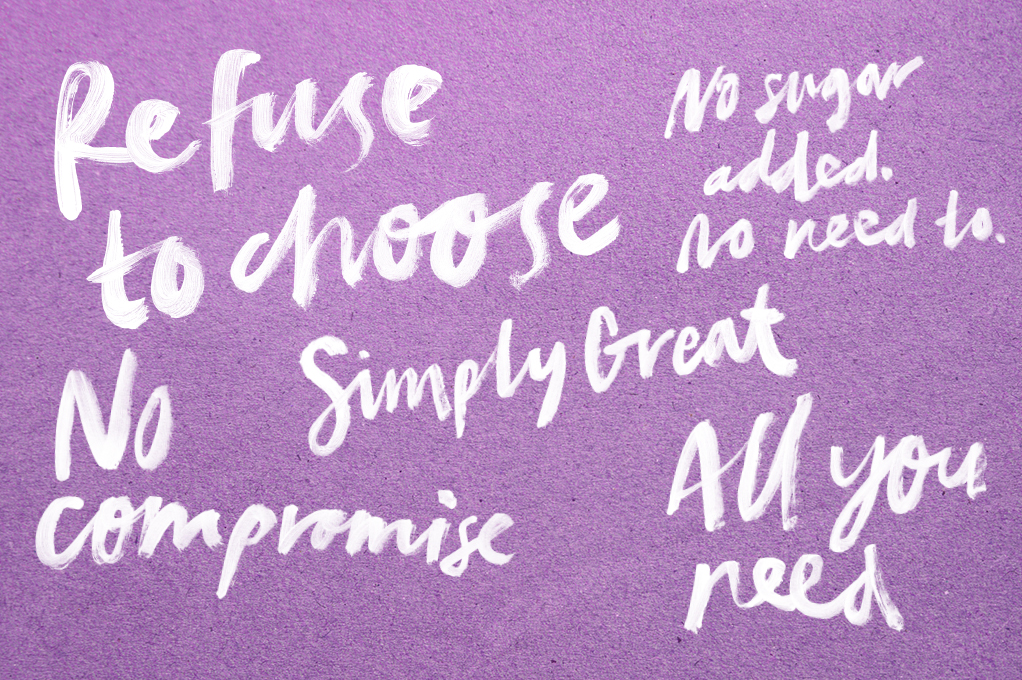 Refuse
to choose
No sugar
added.
No need to.
Simply Great
No
compromise
All you
need